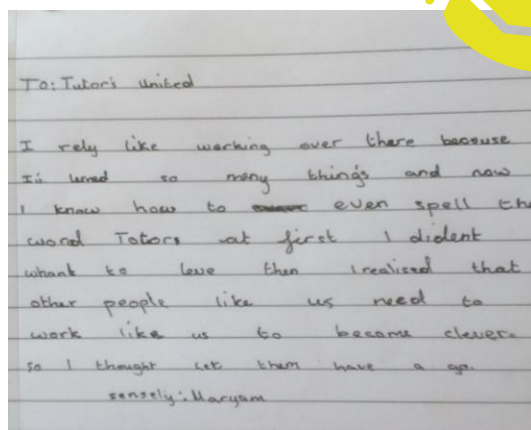 To: Tutor's United
I rely like working over there because
I's lerned so many thing's and now
I know how to even spell the
word Totors at first I dident
whant to leve then I realised that
other people like us need to
work like us to become clever.
so I thought let them have a go.
sensely: Maryam